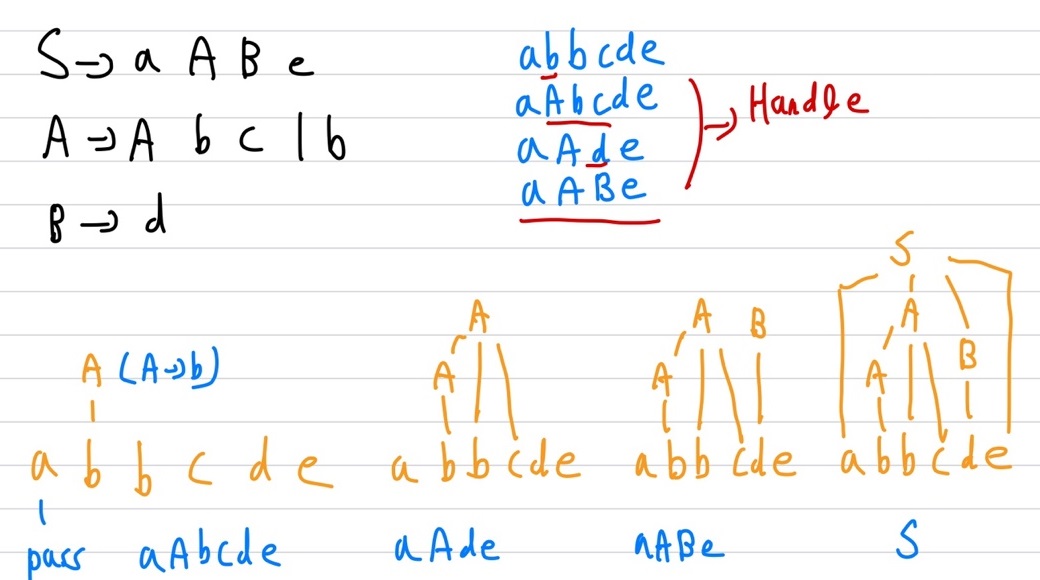 S → a A B e
A → A b c | b
B → d
abbcde
aAbcde
aAde
aABe
→ Handle
A (A→b)
a b b c d e
pass aAbcde
A
A
abbcde
aAde
A B
A
abbcde
aABe
S
A
A B
abbcde
S